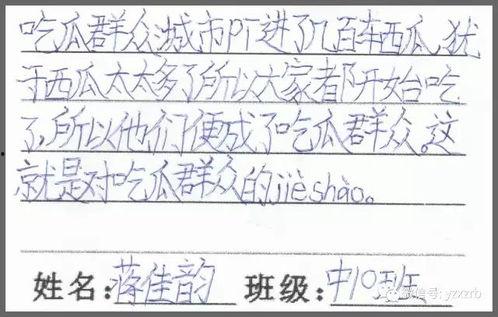 吃瓜群众:城市PT进了几百车西瓜,犹
于西瓜太太多了所以大家者阝开始吃
了,所以他们便成了吃瓜群众。这
就是对吃瓜群众的jièshào。
姓名:蒋佳韵 班级:中10班
微信号: yzxzrb